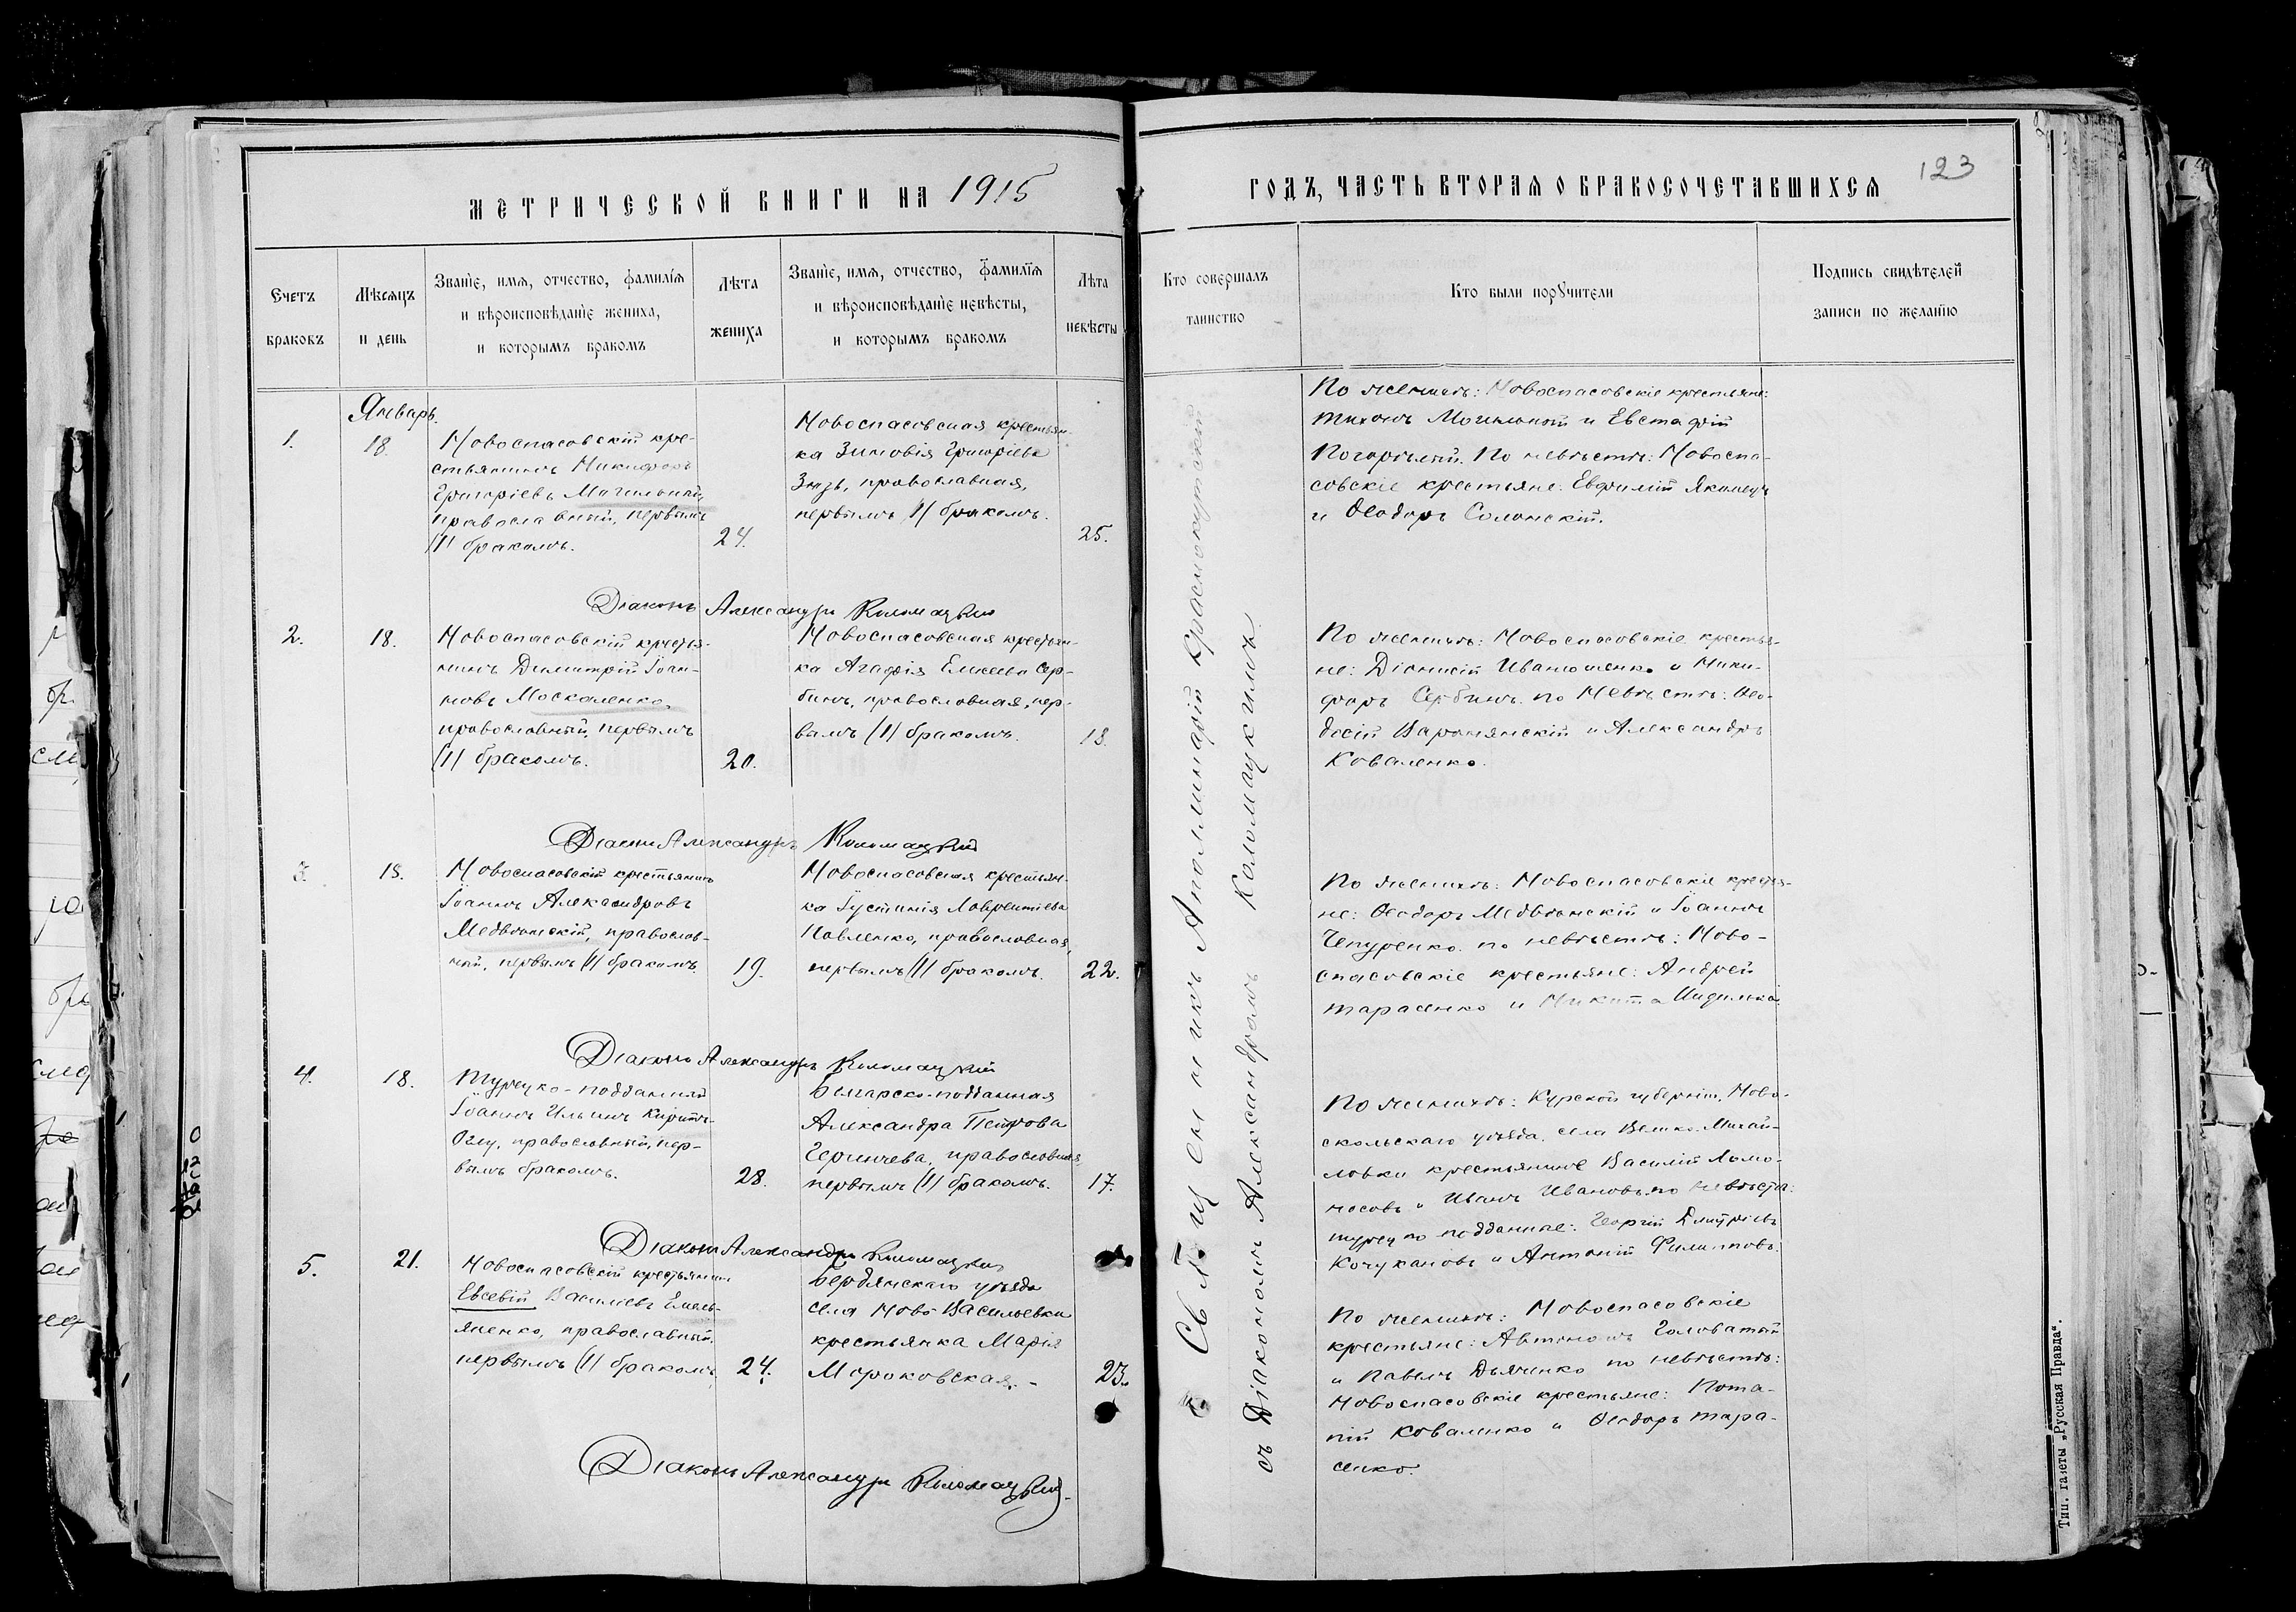 МЕТРИЧЕСКОЙ КНИГИ НА 1915
ГОДЪ, ЧАСТЬ ВТОРАЯ О БРАКОСОЧЕТАВШИХСЯ
123
Счетъ
браковъ
Мѣсяцъ
и день
Званїе, имя, отчество, фамилїя
и вѣроисповѣданїе жениха,
и которымъ бракомъ
Лѣта
жениха
Званїе, имя, отчество, фамилїя
и вѣроисповѣданїе невѣсты,
и которымъ бракомъ
Лѣта
невѣсты
Кто совершалъ
таинство
Кто были поручители
Подпись свидѣтелей
записи по желанїю
Январь.
1.
18.
Новоспасовскій кре-
стьянинъ Никифоръ
Григоріевъ Могильный,
православный, первымъ
/1/ бракомъ.
24.
Новоспасовская крестьян-
ка Зиновія Григоріева
православная,
первымъ /1/ бракомъ.
25.
По женихѣ: Новоспасовскіе крестьяне:
Тихонъ Могильный и Евстафій
Погорѣлый. По невѣстѣ: Новоспа-
совскіе крестьяне: Евфимій Якимецъ
и Ѳеодоръ Солонскій.
Діаконъ Александръ Коломацкій
2.
18.
Новоспасовскій крестья-
нинъ Димитрій Іоан-
новъ Москаленко,
православный, первымъ
/1/ бракомъ.
20.
Новоспасовская крестьян-
ка Агафія Елисеева Сер-
бинъ, православная, пер-
вымъ /1/ бракомъ.
18.
По женихѣ: Новоспасовскіе крестья-
не: Діонисій Иванющенко и Ники-
форъ Сербинъ. по Невѣстѣ: Ѳео-
досій и Александръ
Коваленко.
Діаконъ Александръ Коломацкій
3.
18.
Новоспасовскій крестьянинъ
Іоаннъ Александровъ
Медвѣнскій, православ-
ный, первымъ /1/ бракомъ.
19.
Новоспасовская крестьян-
ка Іустинія Лаврентіева
Павленко, православная,
первымъ /1/ бракомъ.
22.
По женихѣ: Новоспасовскіе крестья-
не: Ѳеодоръ Медвѣнскій и Іоаннъ
Чепуренко. по невѣстѣ: Ново-
спасовскіе крестьяне: Андрей
Тарасенко и Никита
Діаконъ Александръ Коломацкій
4.
18.
Турецко-подданный
Іоаннъ Ильинъ
Оглу, православный, пер-
вымъ бракомъ.
28.
Болгарско-подданная
Александра Петрова
православная,
первымъ /1/ бракомъ.
17.
По женихѣ: Курской губерніи, Ново-
скольскаго уѣзда, села Велико-Михай-
ловки крестьяне Василій Ломо-
носовъ и Иванъ Ивановъ. по невѣстѣ:
турецко подданные: Георгій Дмитріевъ
Кочукановъ и Антоній Филипповъ.
Діаконъ Александръ Коломацкій
5.
21.
Новоспасовскій крестьянинъ
Евсевій Василіевъ Емель-
яненко, православный,
первымъ /1/ бракомъ.
24.
Бердянскаго уѣзда
села Ново-Васильевки
крестьянка Марія
Мороковская. -
23.
По женихѣ: Новоспасовскіе
крестьяне: Автономъ Головатый
и Павелъ Дьяченко по невѣстѣ:
Новоспасовскіе крестьяне: Пота-
пій Коваленко и Ѳеодоръ Тара-
сенко.
Діаконъ Александръ Коломацкій.
Священникъ Аполлинарій Краснокутскій
съ Діакономъ Александромъ Коломацкимъ.
Тип. газеты „Русская Правда“.